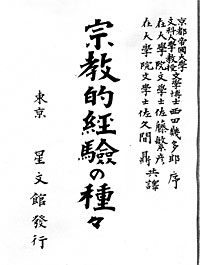 京都帝國大學
文科大學教授文學博士西田幾多郎 序
在大學院文學士佐藤繁彦
在大學院文學士佐久間 鼎 共譯
宗教的經驗の種々
東京 星文館發行